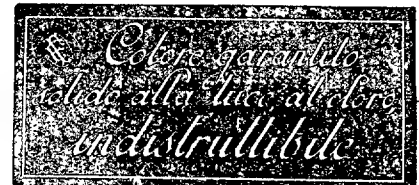 Colore garantito
solido alla luce, al cloro
indistruttibile